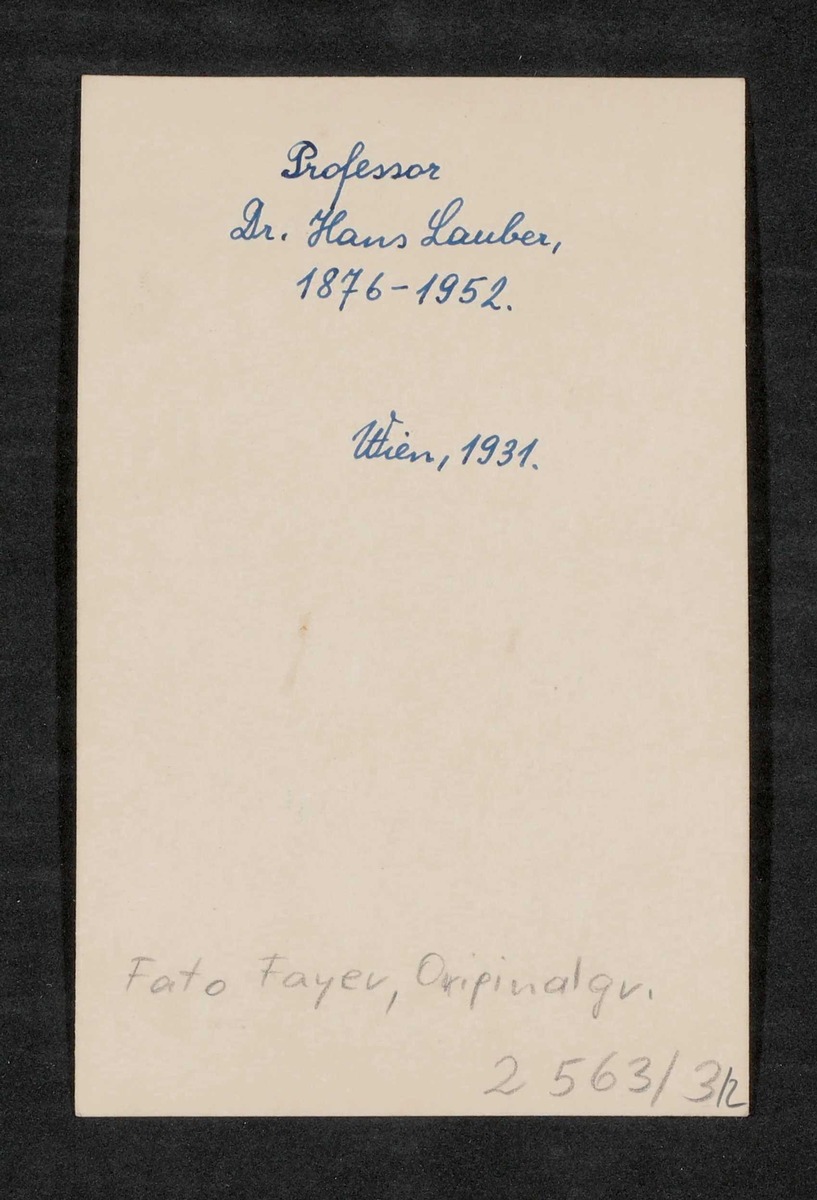 Professor
Dr. Hans Lauber,
1876-1952.
Wien, 1931.
Foto Fayer, Originalgr.
2 563/3/2